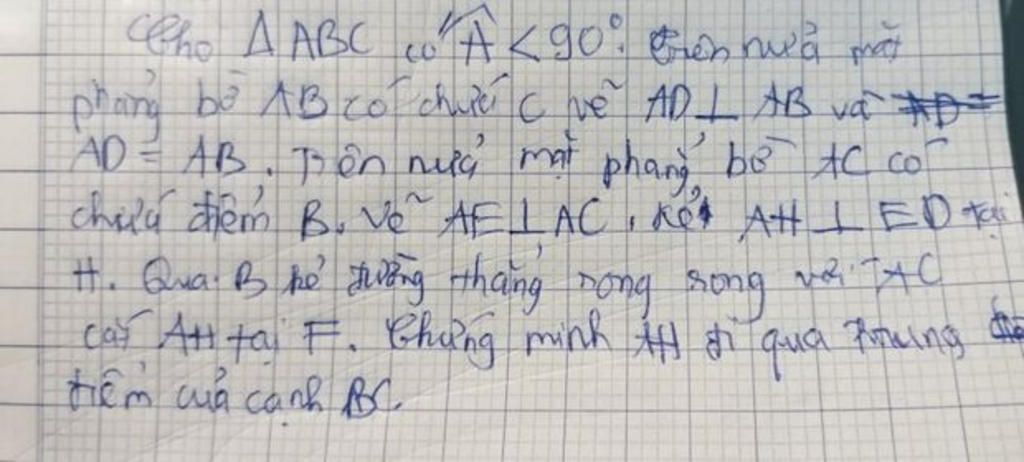 Cho Δ ABC có Â < 90°. trên nửa mặt
phẳng bờ AB có chứa C vẽ AD ⊥ AB và AD =
AD = AB. Trên nửa mặt phẳng bờ AC có
chứa điểm B, Vẽ AE ⊥ AC, Kẻ AH ⊥ ED tại
H. Qua B kẻ đường thẳng song song với AC
cắt AH tại F. Chứng minh AH đi qua trung
điểm của cạnh BC.